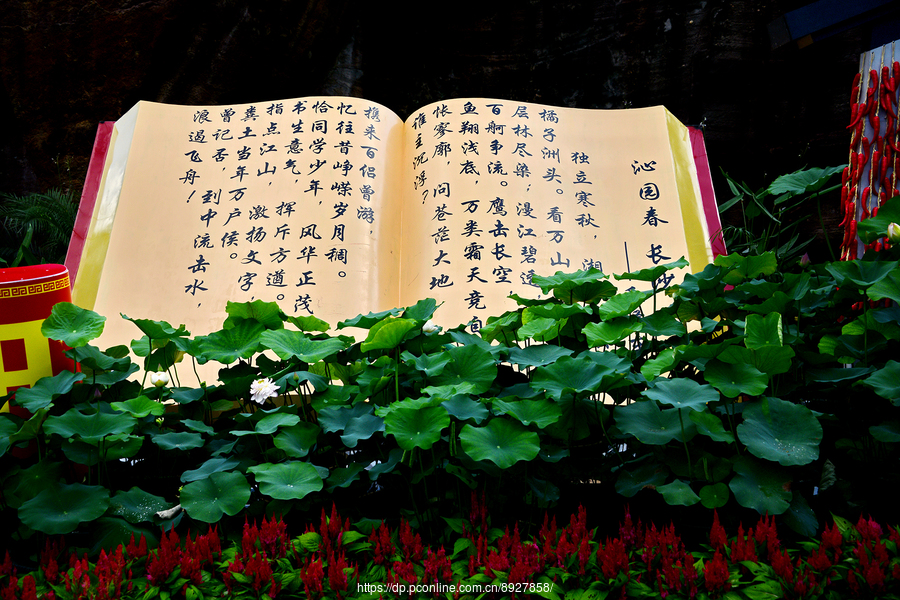 沁园春 长沙
独立寒秋，湘
橘子洲头。看万山
层林尽染；漫江碧透
百舸争流。鹰击长空
鱼翔浅底，万类霜天竞自
怅寥廓，问苍茫大地
谁主沉浮？
携来百侣曾游，
忆往昔峥嵘岁月稠。
恰同学少年，风华正茂
书生意气，挥斥方遒。
指点江山，激扬文字
粪土当年万户侯。
曾记否，到中流击水，
浪遏飞舟！
https://dp.pconline.com.cn/8927858/